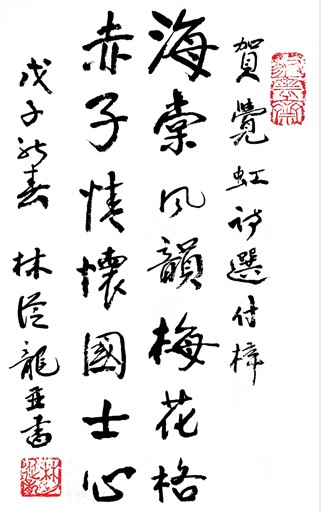 賀覺虹詩選付梓
海棠風韻梅花格
赤子情懷國士心
戊子新春 林從龍並書